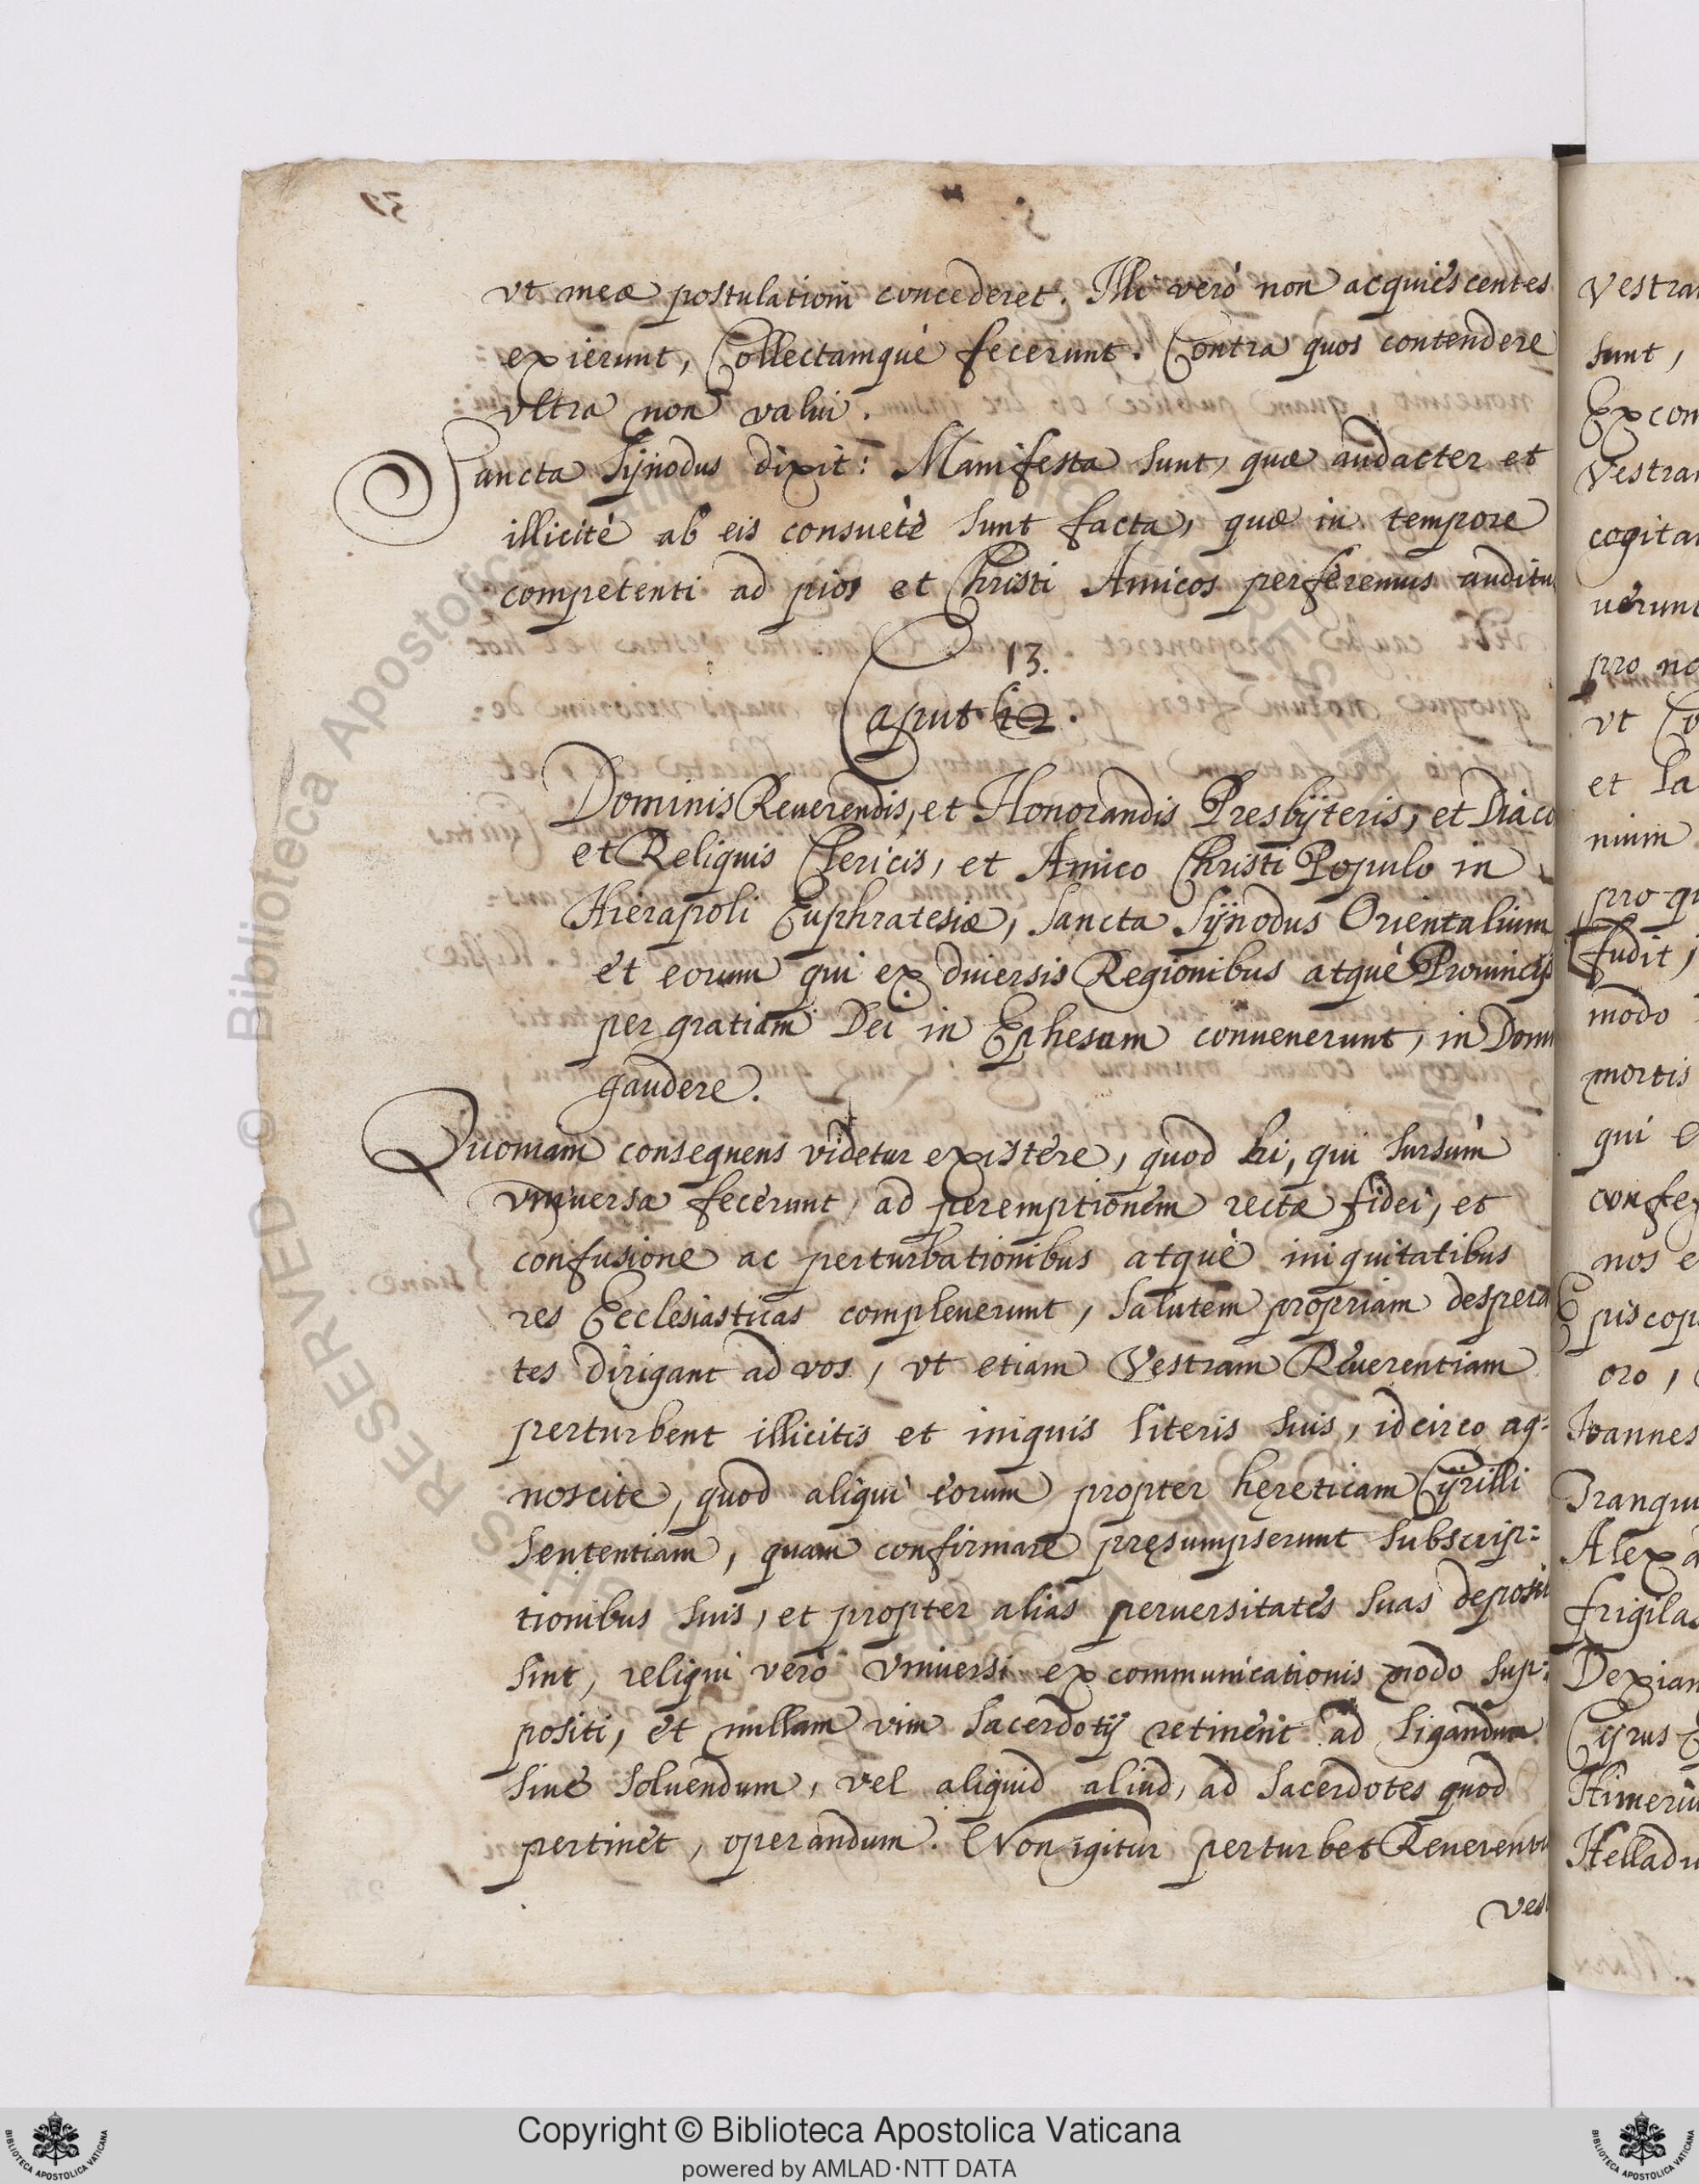 vt meæ postulationi concederet. Illi verò non acquiescentes
exierunt, Collectamquè fecerunt. Contra quos contendere
vltra non valui.
Sancta Sÿnodus dixit: Manifesta sunt, quæ audacter et
illicitè ab eis consuetè sunt facta, quæ in tempore
competenti ad pios et Christi Amicos perferemus auditu
13.
Caput 12.
Dominis Reuerendis, et Honorandis Presbÿteris, et Diaco
et Reliquis Clericis, et Amico Christi Populo in
Hierapoli Euphratesiæ, Sancta Sÿnodus Orientalium
et eorum qui ex diuersis Regionibus atquè Prouincijs
per gratiam Dei in Ephesum conuenerunt, in Domi
gaudere.
Quoniam consequens videtur existere, quod hi, qui sursùm
vniuersa fecerunt, ad peremptionem rectæ fidei, et
confusione ac perturbationibus atquè iniquitatibus
res Ecclesiasticas compleuerunt, salutem propriam despera
tes dirigant ad vos, vt etiam Vestram Reuerentiam
perturbent illicitis et iniquis literis suis, idcirco ag:
noscite, quod aliqui eorum propter hęreticam Cÿrilli
sententiam, quam confirmare pręsumpserunt subscrip:
tionibus suis, et propter alias peruersitates suas deposit
sint, reliqui verò vniuersi excommunicationis modo sup:
positi, et nullam vim sacerdotij retinent ad ligandum
siue soluendum, vel aliquid aliud, ad sacerdotes quod
pertinet, operandum. Non igitur perturbet Reuerenti
ves
Vestra
sunt,
Excom
Vestra
cogita
uerunt
pro no
vt Co
et La
nium
pro qu
fudit,
modo
mortis
qui e
confe
nos e
Episcop
oro,
Ioannes
Tranqui
Alexa
frigila
Dexian
Cyrus
Himeriu
Helladu
© Biblioteca Apostolica Vaticana
RESERVED
Copyright © Biblioteca Apostolica Vaticana
powered by AMLAD·NTT DATA
BIBLIOTECA APOSTOLICA VATICANA
BIBLIOTECA APOSTOLICA VATICANA